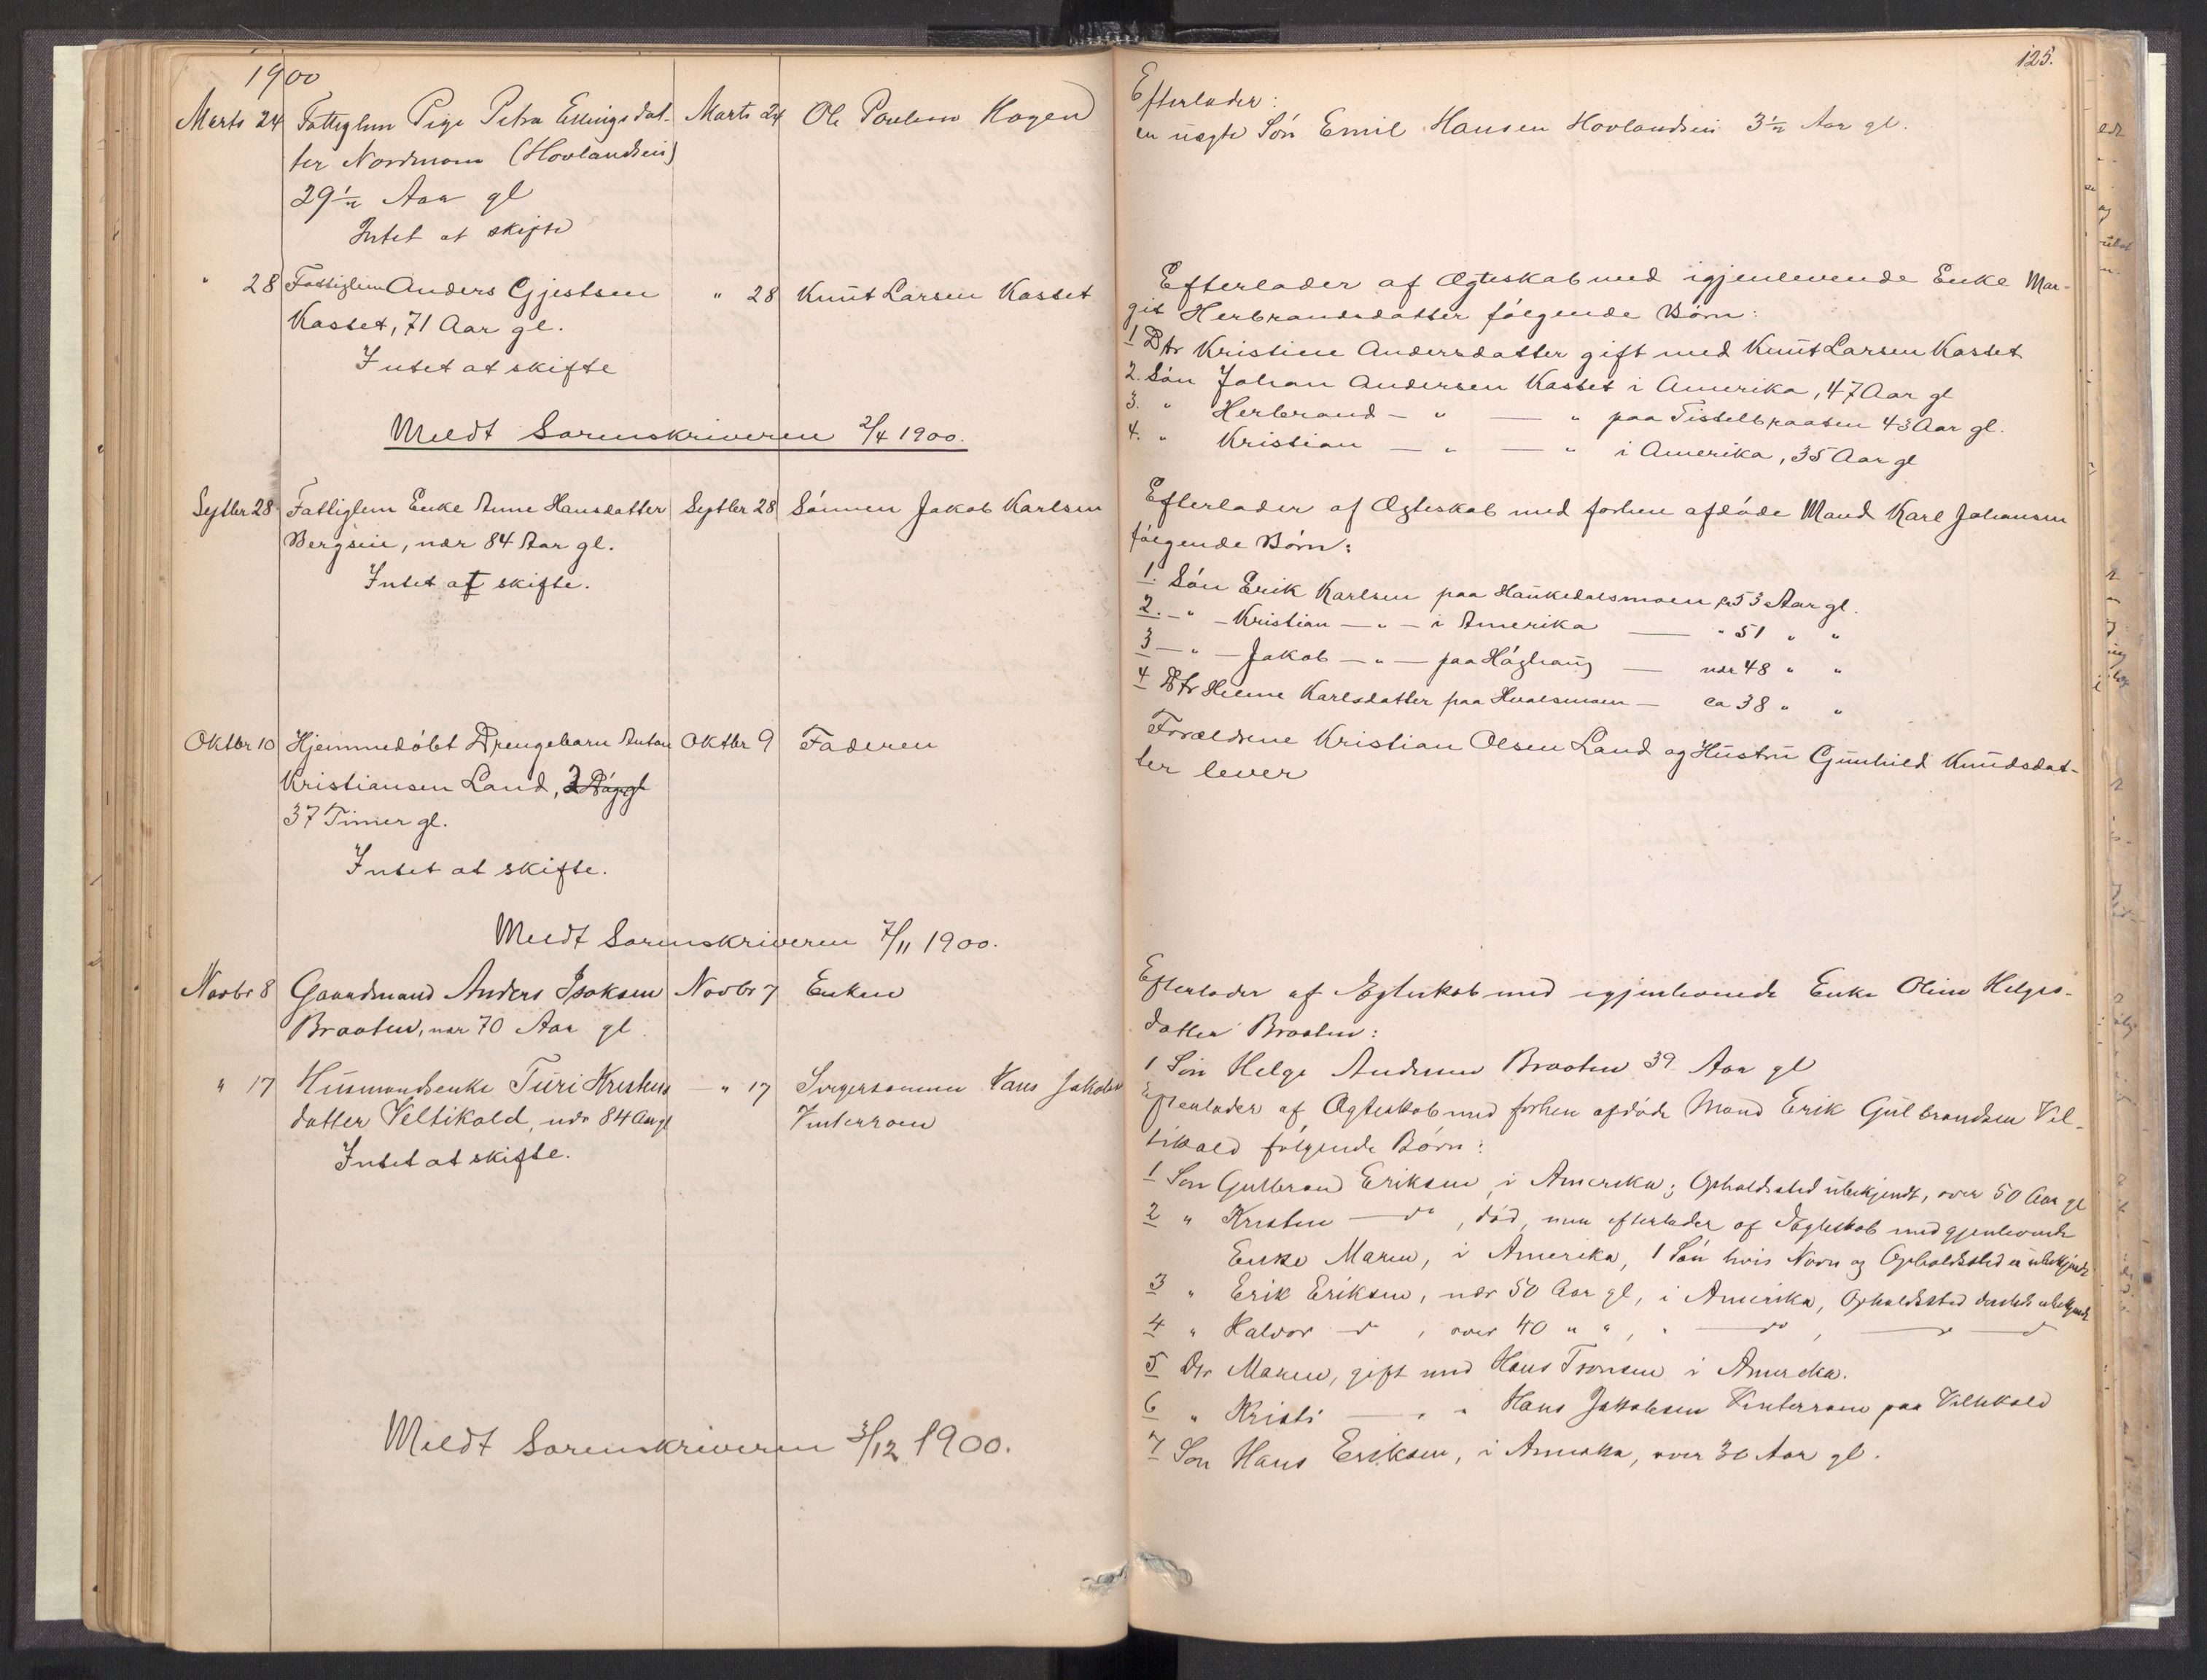 1900
125.
Marts 24 Fattiglem Pige Petra Ellingsdat- Marts 24 Ole Paulsen Hagen
ter Nordmoen (Hovlandseie)
29½ Aar gl
Intet at skifte
Efterlader:
en uægte Søn Emil Hansen Hovlandseie 3½ Aar gl.
" 28 Fattiglem Anders Gjestsen " 28 Knut Larsen Kasset
Kasset, 71 Aar gl.
Intet at skifte
Meldt Sorenskriveren 2/4 1900.
Efterlader af Ægteskab med igjenlevende Enke Mar-
git Herbrandsdatter følgende Børn:
1 Dtr Kristine Andersdatter gift med Knut Larsen Kasset
2. Søn Johan Andersen Kasset i Amerika, 47 Aar gl
3. " Herbrand — " — " paa Tisselbraaten 43 Aar gl.
4. " Kristian — " — " i Amerika, 35 Aar gl
Septbr 28 Fattiglem Enke Anne Hansdatter Septbr 28 Sønnen Jakob Karlsen
Bergseie, nær 84 Aar gl.
Intet at skifte.
Efterlader af Ægteskab med forhen afdøde Mand Karl Johansen
følgende Børn:
1. Søn Erik Karlsen paa Haukedalsmoen ca 53 Aar gl.
2. — " — Kristian — " — i Amerika — " 51 " "
3 — " — Jakob — " — paa Høghaug — nær 48 " "
4 Dtr Helene Karlsdatter paa Hvalsmoen — ca 38 " "
Oktbr 10 Hjemmedøbt Drengebarn Anton Oktbr 9 Faderen
Kristiansen Land, 2 Dage gl
37 Timer gl.
Intet at skifte.
Meldt Sorenskriveren 7/11 1900.
Forældrene Kristian Olsen Land og Hustru Gunhild Knudsdat-
ter lever
Novbr 8 Gaardmand Anders Isaksen Novbr 7 Enken
Braaten, nær 70 Aar gl.
Efterlader af Ægteskab med igjenlevende Enke Oline Helges-
datter Braaten:
1 Søn Helge Andersen Braaten 39 Aar gl
" 17 Husmandsenke Turi Kristens — " 17 Svigersønnen Hans Jakobsen
datter Veltikold, nær 84 Aar gl Vinterroen
Intet at skifte.
Efterlader af Ægteskab med forhen afdøde Mand Erik Gulbrandsen Vel-
tikold følgende Børn:
1 Søn Gulbrand Eriksen, i Amerika; Opholdssted ubekjendt, over 50 Aar gl
2 " Kristen — do, død, men efterlader af Ægteskab med gjenlevende
Enke Maren, i Amerika, 1 Søn hvis Navn og Opholdssted er ubekjendt
3 " Erik Eriksen, nær 50 Aar gl, i Amerika, Opholdssted dersteds ubekjendt
4 " Halvor — do, over 40 " ", " — do, — do — do
5 Dtr Maren, gift med Hans Tronsen i Amerika.
6 " Kristi — " " Hans Jakobsen Vinterroen paa Veltikold
7 Søn Hans Eriksen, i Amerika, over 30 Aar gl.
Meldt Sorenskriveren 3/12 1900.